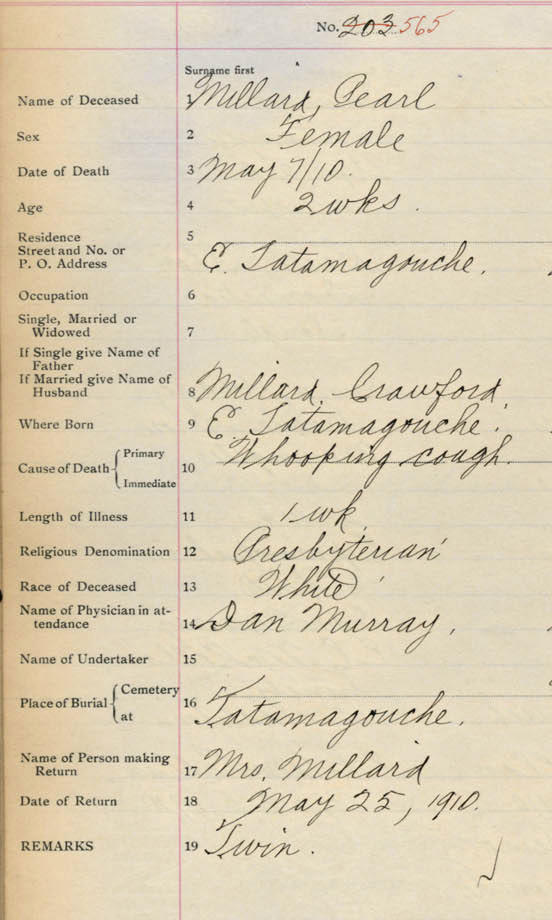 No. 203 565
Surname first
Name of Deceased 1 Millard, Pearl
Sex 2 Female
Date of Death 3 May 7/10.
Age 4 2 wks.
Residence 5
Street and No. or
P. O. Address E. Tatamagouche.
Occupation 6
Single, Married or
Widowed 7
If Single give Name of
Father
If Married give Name of
Husband 8 Millard, Crawford,
Where Born 9 E Tatamagouche.
Cause of Death { Primary Whooping cough.
10
Immediate
Length of Illness 11 1 wk
Religious Denomination 12 Presbyterian
Race of Deceased 13 White
Name of Physician in at-
tendance 14 Dan Murray.
Name of Undertaker 15
Place of Burial { Cemetery
16
at Tatamagouche.
Name of Person making
Return 17 Mrs. Millard
Date of Return 18 May 25, 1910.
REMARKS 19 Twin.